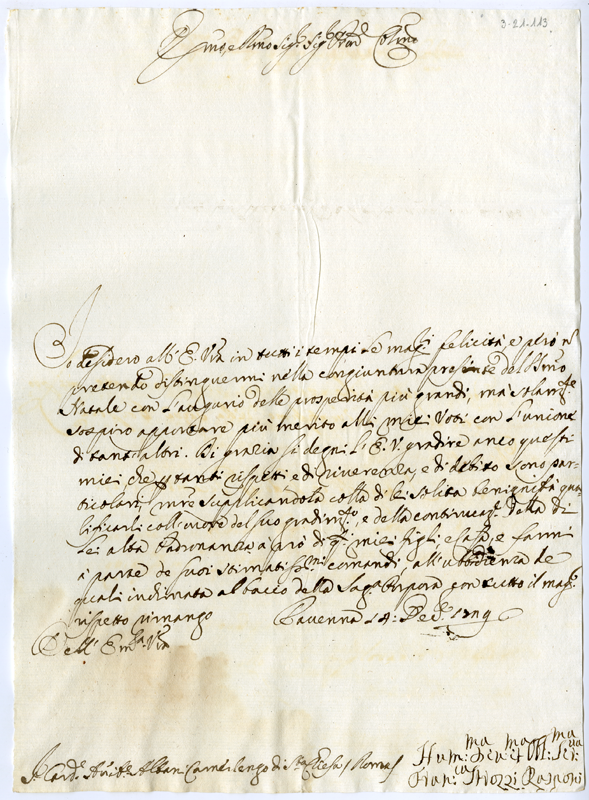 3-21-113
Emo, e Rmo Sig.r Sig.r Pron Colmo
Io desidero all' E. Vra in tutti i tempi le mag.ri felicità e però n
pretendo distinguermi nella congiuntura presente del SSmo
Natale con l'augurio delle prosperità più grandi, mà solam.te
sospiro apportare più merito alli miei Voti con l'unione
di tant'altri. Di grazia si degni l'E. V. gradire anco questi
miei, che p tanti rispetti e di riverenza, e di debito sono par-
ticolari, mre supplicandola colla di lei solita benignità qua-
lificarli coll'onore del suo gradim.to, e della continuaz.e della di
Lei alta Padronanza à prò di miei figli, e Casa, e farmi
à parte de suoi stimatiss.mi comandi, all' ubbidienza de
quali inchinata al bacio della Sag. Porpora con tutto il mag.r
rispetto rimango
Ravenna 14: Dec.e 1719
Dell' Em.za Vra
Card.e Anib.e Albani Camerlengo di S.ta Chiesa / Roma /
Hum:ma Div:ma et Obl:ma Ser:va
Fran:ca Strozzi Rasponi